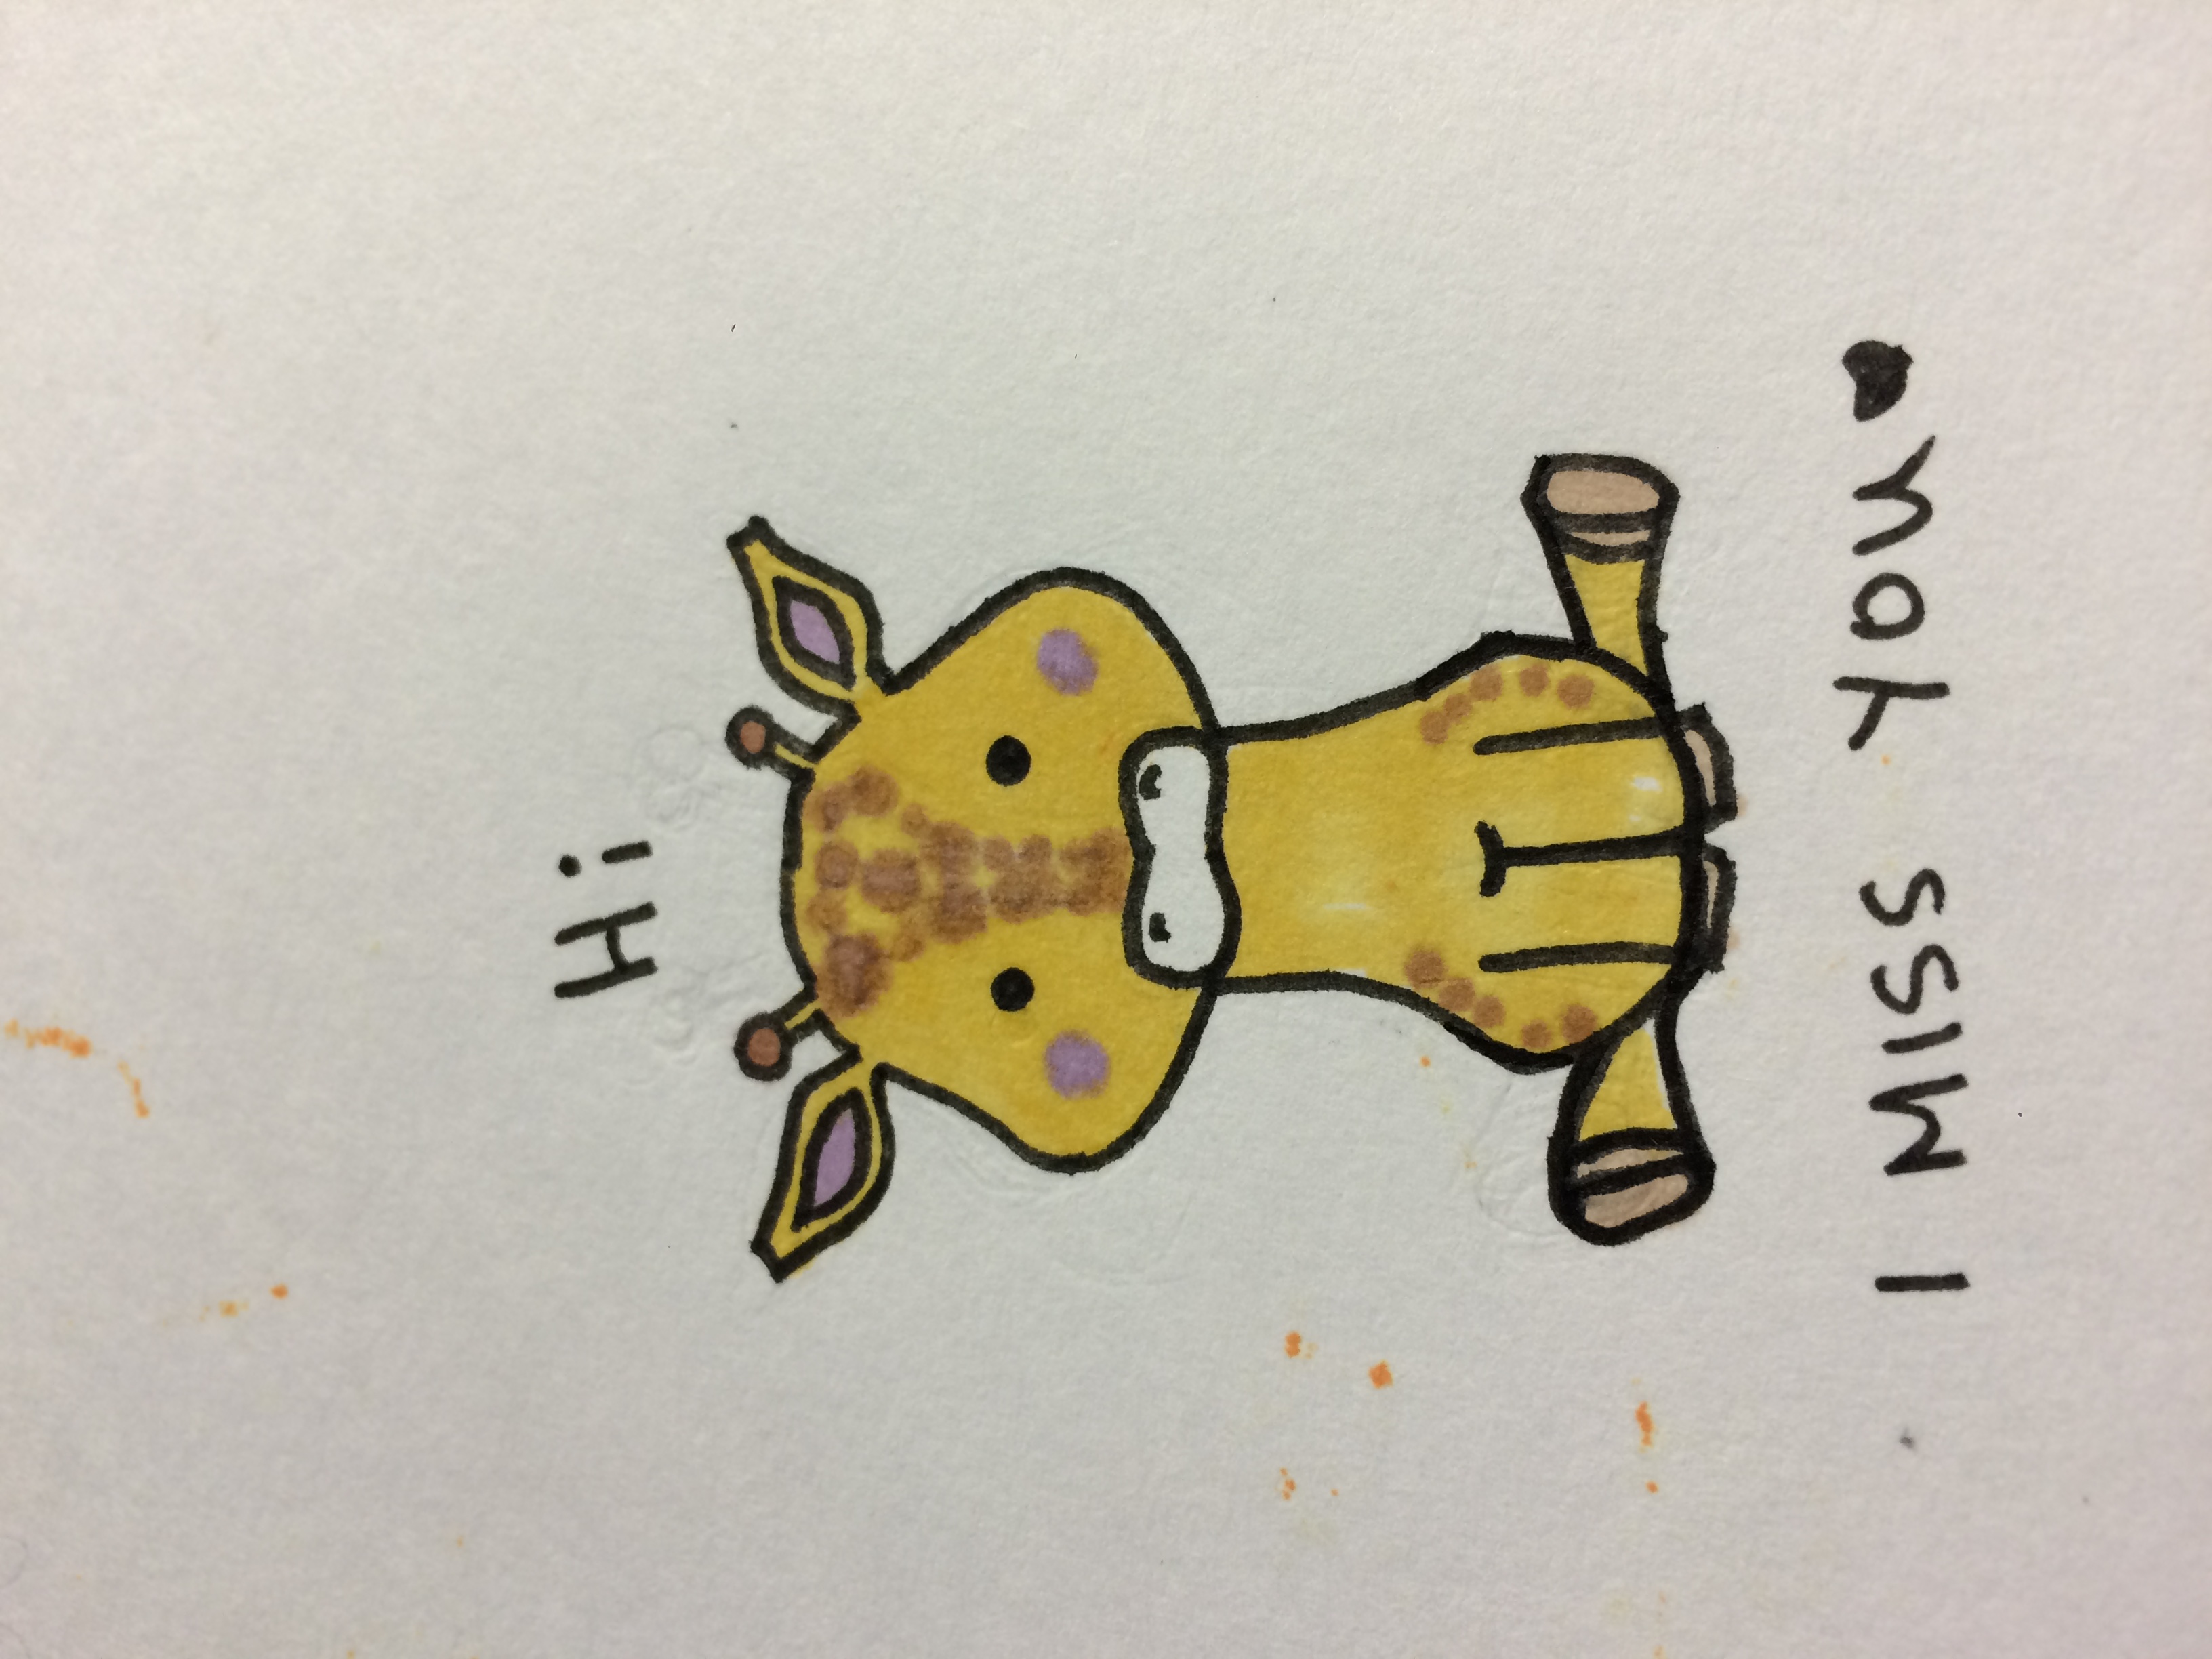 Hi
I MISS YOU♥